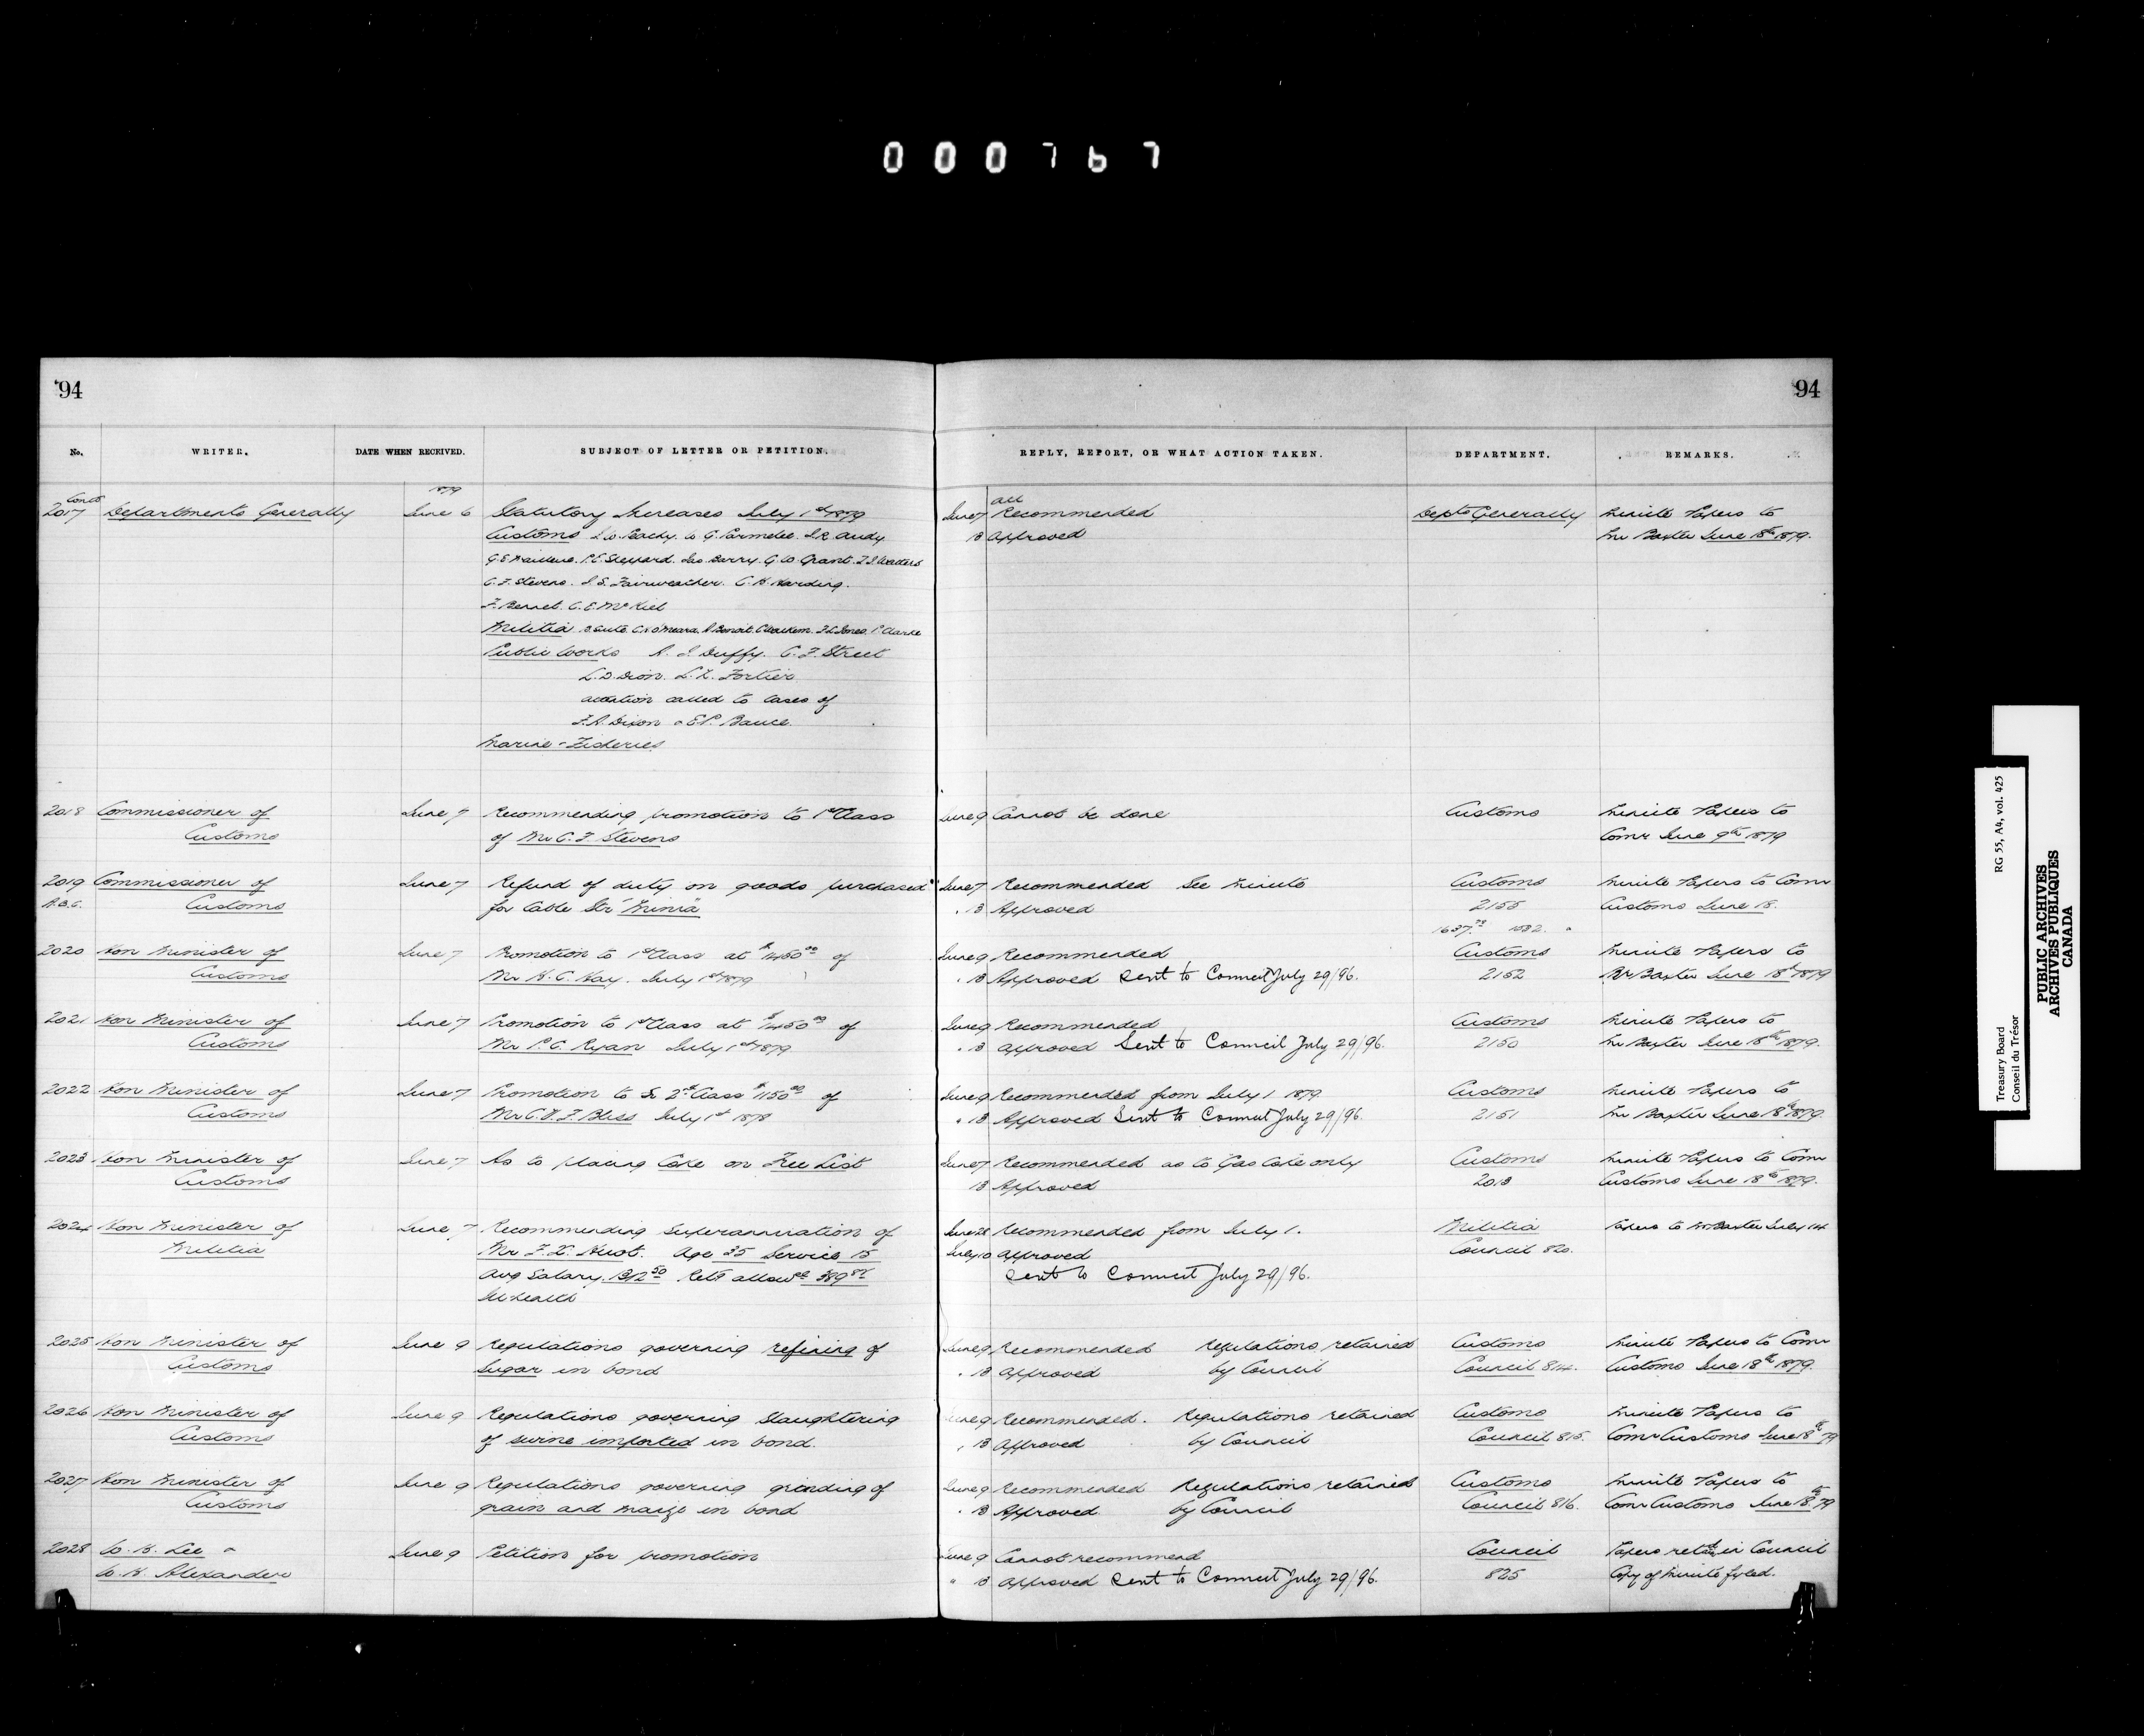 000767
94
94
No. WRITER. DATE WHEN RECEIVED. SUBJECT OF LETTER OR PETITION. REPLY, REPORT, OR WHAT ACTION TAKEN. DEPARTMENT. REMARKS.
1879
2017 Departments Generally June 6 Statutory Increases July 1st 1879 June 7 all Recommended Depts Generally Minute Papers to
Customs W. G. Parmelee. 13 Approved Mr Baxter June 18th 1879.
Jas Barry. G W Grant.
C. F. Stevens. J. S. Fairweather. C. H. Harding.
F. Bennet. C. E. McKiel
Militia C. O'Meara. Benoit. F C Jones. P Clarke
Public Works A. J. Duffy. C. F. Street
L. D. Dion. L. Z. Fortier
attention called to cases of
F. A. Dixon & E. P.
Marine & Fisheries
2018 Commissioner of June 7 Recommending promotion to 1st Class June 9 Cannot be done Customs Minute Papers to
Customs of Mr C. F. Stevens Comr June 9th 1879
2019 Commissioner of June 7 Refund of duty on goods purchased June 7 Recommended See Minute Customs Minute Papers to Comr
Customs for Cable Str "Minia" " 13 Approved 2155 Customs June 18.
2020 Hon Minister of June 7 Promotion to 1st Class at $1450.00 of June 9 Recommended Customs Minute Papers to
Customs Mr H. C. Hay. July 1st 1879 " 13 Approved Sent to Council July 29/96. 2152 Mr Baxter June 18th 1879
2021 Hon Minister of June 7 Promotion to 1st Class at $1450.00 of June 9 Recommended Customs Minute Papers to
Customs Mr P. C. Ryan July 1st 1879 " 13 Approved Sent to Council July 29/96. 2150 Mr Baxter June 18th 1879.
2022 Hon Minister of June 7 Promotion to Sr 2nd Class $1150.00 of June 9 Recommended from July 1 1879 Customs Minute Papers to
Customs Mr C. D. F. Bliss July 1st 1879 " 13 Approved Sent to Council July 29/96. 2151 Mr Baxter June 18th 1879
2023 Hon Minister of June 7 As to placing Coke on Free List June 7 Recommended as to Gas Coke only Customs Minute Papers to Comr
Customs 13 Approved 2013 Customs June 18th 1879.
2024 Hon Minister of June 7 Recommending superannuation of June 28 Recommended from July 1. Militia Papers to Mr Baxter July 14
Militia Mr F. X. Huot. Age 35 Service 15 July 10 Approved Council 820.
Avg Salary. Retg allowce Sent to Council July 29/96.
Ill health
2025 Hon Minister of June 9 Regulations governing refining of June 9 Recommended Regulations retained Customs Minute Papers to Comr
Customs Sugar in bond " 13 Approved by Council Council 814. Customs June 18th 1879.
2026 Hon Minister of June 9 Regulations governing Slaughtering June 9 Recommended. Regulations retained Customs Minute Papers to
Customs of swine imported in bond. " 13 Approved by Council Council 815. Comr Customs June 18th 79
2027 Hon Minister of June 9 Regulations governing grinding of June 9 Recommended Regulations retained Customs Minute Papers to
Customs grain and maize in bond " 13 Approved. by Council Council 816. Comr Customs June 18th 79
2028 W. H. Lee & June 9 Petition for promotion June 9 Cannot recommend Council Papers retd in Council
W. H. Alexander " 13 Approved Sent to Council July 29/96. 825 Copy of Minute fyled.
Treasury Board RG 55, A4, vol. 425
Conseil du Trésor
PUBLIC ARCHIVES
ARCHIVES PUBLIQUES
CANADA